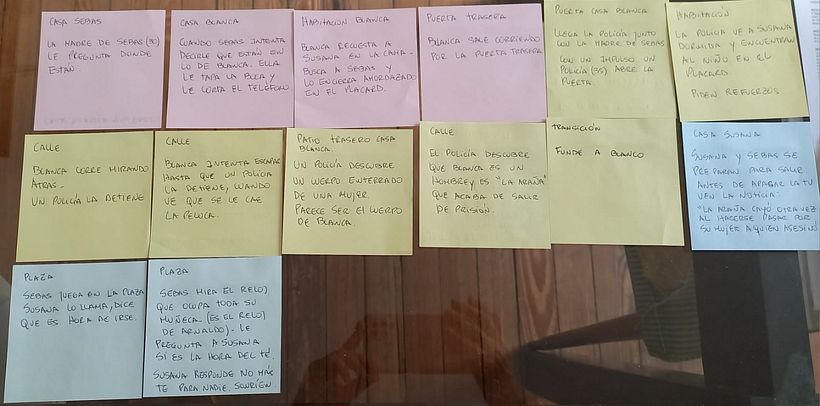 CASA SEBAS
LA MADRE DE SEBAS (30)
LE PREGUNTA DONDE
ESTÁN
CASA BLANCA
CUANDO SEBAS INTENTA
DECIRLE QUE ESTÁN EN
LO DE BLANCA. ELLA
LE TAPA LA BOCA Y
LE CORTA EL TELÉFONO
HABITACION BLANCA
BLANCA RECUESTA A
SUSANA EN LA CAMA.
BUSCA A SEBAS Y
LO ENCIERRA AMORDAZADO
EN EL PLACARD.
PUERTA TRASERA
BLANCA SALE CORRIENDO
POR LA PUERTA TRASERA
PUERTA CASA BLANCA
LLEGA LA POLICÍA JUNTO
CON LA MADRE DE SEBAS
CON UN IMPULSO UN
POLICÍA (35) ABRE LA
PUERTA.
HABITACIÓN
LA POLICIA VE A SUSANA
DORMIDA Y ENCUENTRAN
AL NIÑO EN EL
PLACARD.
PIDEN REFUERZOS
CALLE
BLANCA CORRE MIRANDO
ATRAS.
UN POLICÍA LA DETIENE
CALLE
BLANCA INTENTA ESCAPAR
HASTA QUE UN POLICÍA
LA DETIENE, CUANDO
VE QUE SE LE CAE
LA PELUCA.
PATIO TRASERO CASA
BLANCA.
UN POLICÍA DESCUBRE
UN CUERPO ENTERRADO
DE UNA MUJER.
PARECE SER EL CUERPO
DE BLANCA.
CALLE
EL POLICÍA DESCUBRE
QUE BLANCA ES UN
HOMBRE Y ES "LA ARAÑA"
QUE ACABA DE SALIR
DE PRISIÓN.
TRANSICIÓN
FUNDE A BLANCO
CASA SUSANA
SUSANA Y SEBAS SE
PREPARAN PARA SALIR
ANTES DE APAGAR LA TV
VEN LA NOTICIA:
"LA ARAÑA CAYÓ OTRA VEZ
AL HACERSE PASAR POR
SU MUJER A QUIEN ASESINÓ
PLAZA
SEBAS JUEGA EN LA PLAZA
SUSANA LO LLAMA, DICE
QUE ES HORA DE IRSE.
PLAZA
SEBAS MIRA EL RELOJ
QUE OCUPA TODA SU
MUÑECA. (ES EL RELOJ
DE ARNALDO). LE
PREGUNTA A SUSANA
SI ES LA HORA DEL TÉ.
SUSANA RESPONDE NO MÁS
TE PARA NADIE. SONRÍEN